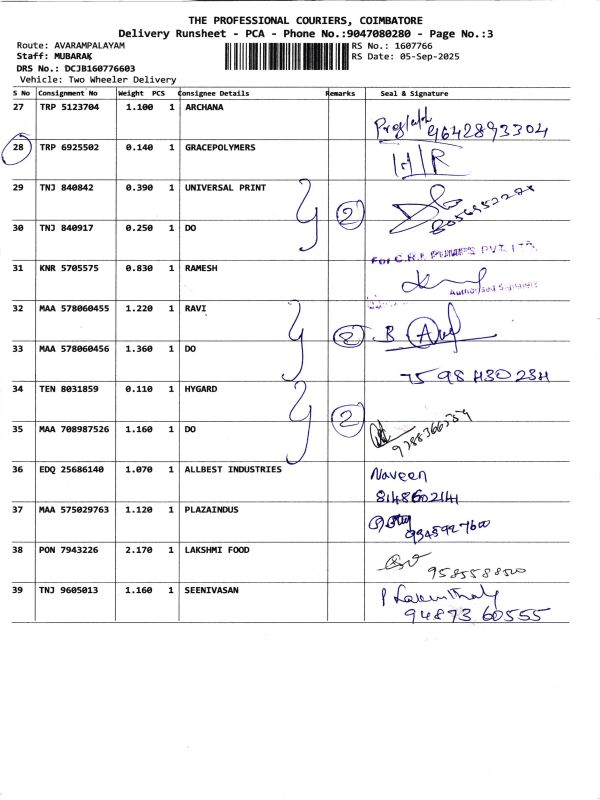 THE PROFESSIONAL COURIERS, COIMBATORE
Delivery Runsheet - PCA - Phone No.:9047080280 - Page No.:3
Route: AVARAMPALAYAM RS No.: 1607766
Staff: MUBARAK RS Date: 05-Sep-2025
DRS No.: DCJB160776603
Vehicle: Two Wheeler Delivery
S No Consignment No Weight PCS Consignee Details Remarks Seal & Signature
27 TRP 5123704 1.100 1 ARCHANA
9642893304
28 TRP 6925502 0.140 1 GRACEPOLYMERS
29 TNJ 840842 0.390 1 UNIVERSAL PRINT
2
30 TNJ 840917 0.250 1 DO
For C.R.I. PUMPS PVT LTD
31 KNR 5705575 0.830 1 RAMESH
Authorised Signatory
32 MAA 578060455 1.220 1 RAVI
2 B
33 MAA 578060456 1.360 1 DO
75 98 430 234
34 TEN 8031859 0.110 1 HYGARD
2
35 MAA 708987526 1.160 1 DO
36 EDQ 25686140 1.070 1 ALLBEST INDUSTRIES Naveen
8148602141
37 MAA 575029763 1.120 1 PLAZAINDUS
9345927600
38 PON 7943226 2.170 1 LAKSHMI FOOD
39 TNJ 9605013 1.160 1 SEENIVASAN
94873 60555